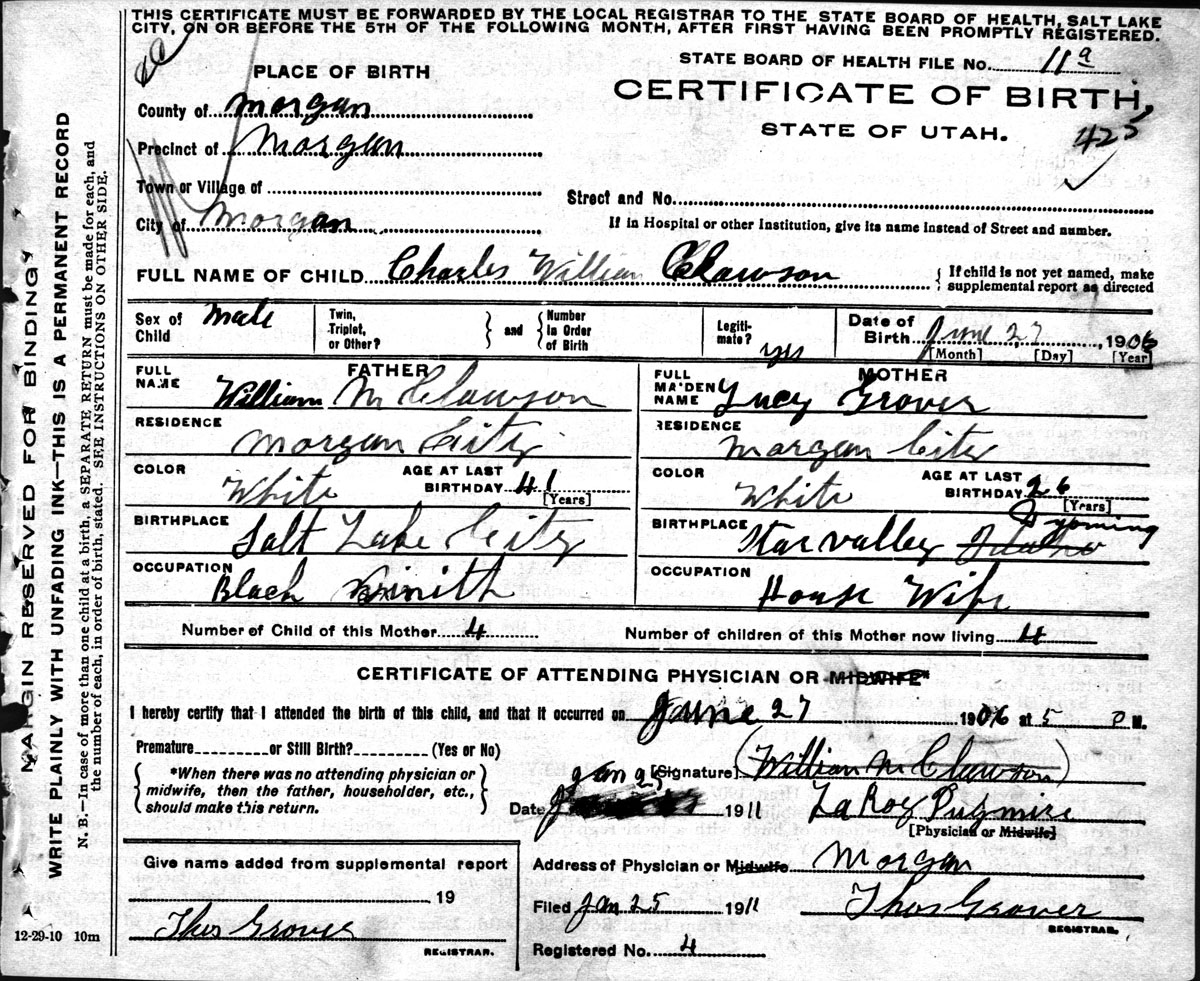 THIS CERTIFICATE MUST BE FORWARDED BY THE LOCAL REGISTRAR TO THE STATE BOARD OF HEALTH, SALT LAKE
CITY, ON OR BEFORE THE 5TH OF THE FOLLOWING MONTH, AFTER FIRST HAVING BEEN PROMPTLY REGISTERED.
STATE BOARD OF HEALTH FILE No. 11a
PLACE OF BIRTH
CERTIFICATE OF BIRTH,
STATE OF UTAH.
425
County of Morgan
Precinct of Morgan
Town or Village of
City of Morgan
Street and No.
If in Hospital or other Institution, give its name instead of Street and number.
FULL NAME OF CHILD Charles William Clawson { If child is not yet named, make
supplemental report as directed
Sex of Child Male
Twin, Triplet, or Other? } and { Number in Order of Birth
Legiti- mate? yes
Date of Birth June 27, 1906
[Month] [Day] [Year]
FATHER
FULL NAME William M Clawson
RESIDENCE Morgan City
COLOR White
AGE AT LAST BIRTHDAY 41 [Years]
BIRTHPLACE Salt Lake City
OCCUPATION Black Smith
MOTHER
FULL MAIDEN NAME Lucy Grover
RESIDENCE Morgan City
COLOR White
AGE AT LAST BIRTHDAY 26 [Years]
BIRTHPLACE Star valley Idaho Wyoming
OCCUPATION House Wife
Number of Child of this Mother 4
Number of children of this Mother now living 4
CERTIFICATE OF ATTENDING PHYSICIAN OR MIDWIFE*
I hereby certify that I attended the birth of this child, and that it occurred on June 27 1906 at 5 P M.
Premature or Still Birth? (Yes or No)
{ *When there was no attending physician or
midwife, then the father, householder, etc.,
should make this return. }
[Signature] (William M Clawson)
Date Jan 25 1911
LaRoy Pugmire
[Physician or Midwife]
Give name added from supplemental report
19
Thos Grover
REGISTRAR.
Address of Physician or Midwife Morgan
Filed Jan 25 1911 Thos Grover
REGISTRAR.
Registered No. 4
12-29-10 10m
MARGIN RESERVED FOR BINDING
WRITE PLAINLY WITH UNFADING INK—THIS IS A PERMANENT RECORD
N. B.—In case of more than one child at a birth, a SEPARATE RETURN must be made for each, and
the number of each, in order of birth, stated. SEE INSTRUCTIONS ON OTHER SIDE.